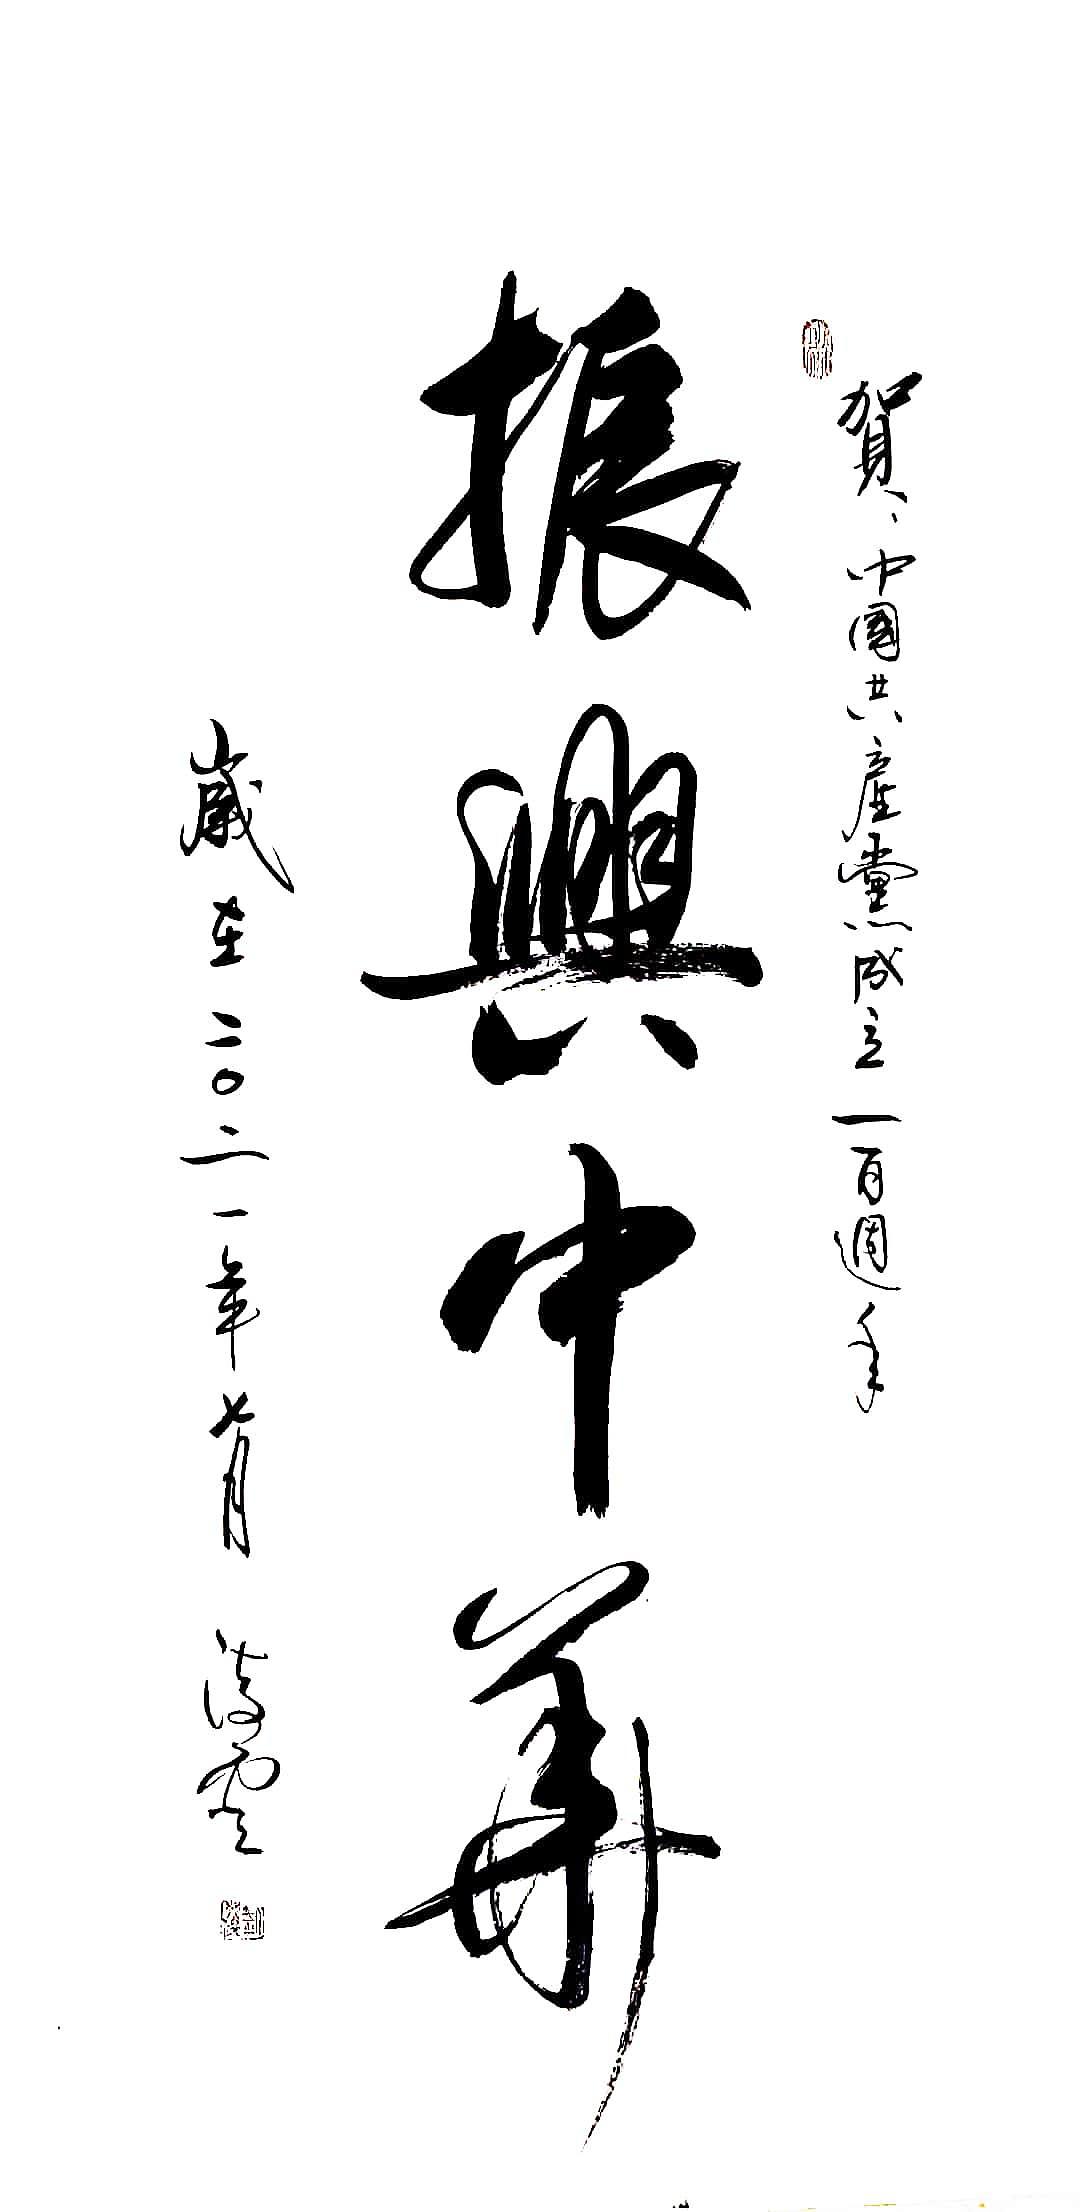 賀、中國共產黨成立一百週年
振興中華
歲在二〇二一年七月 雲